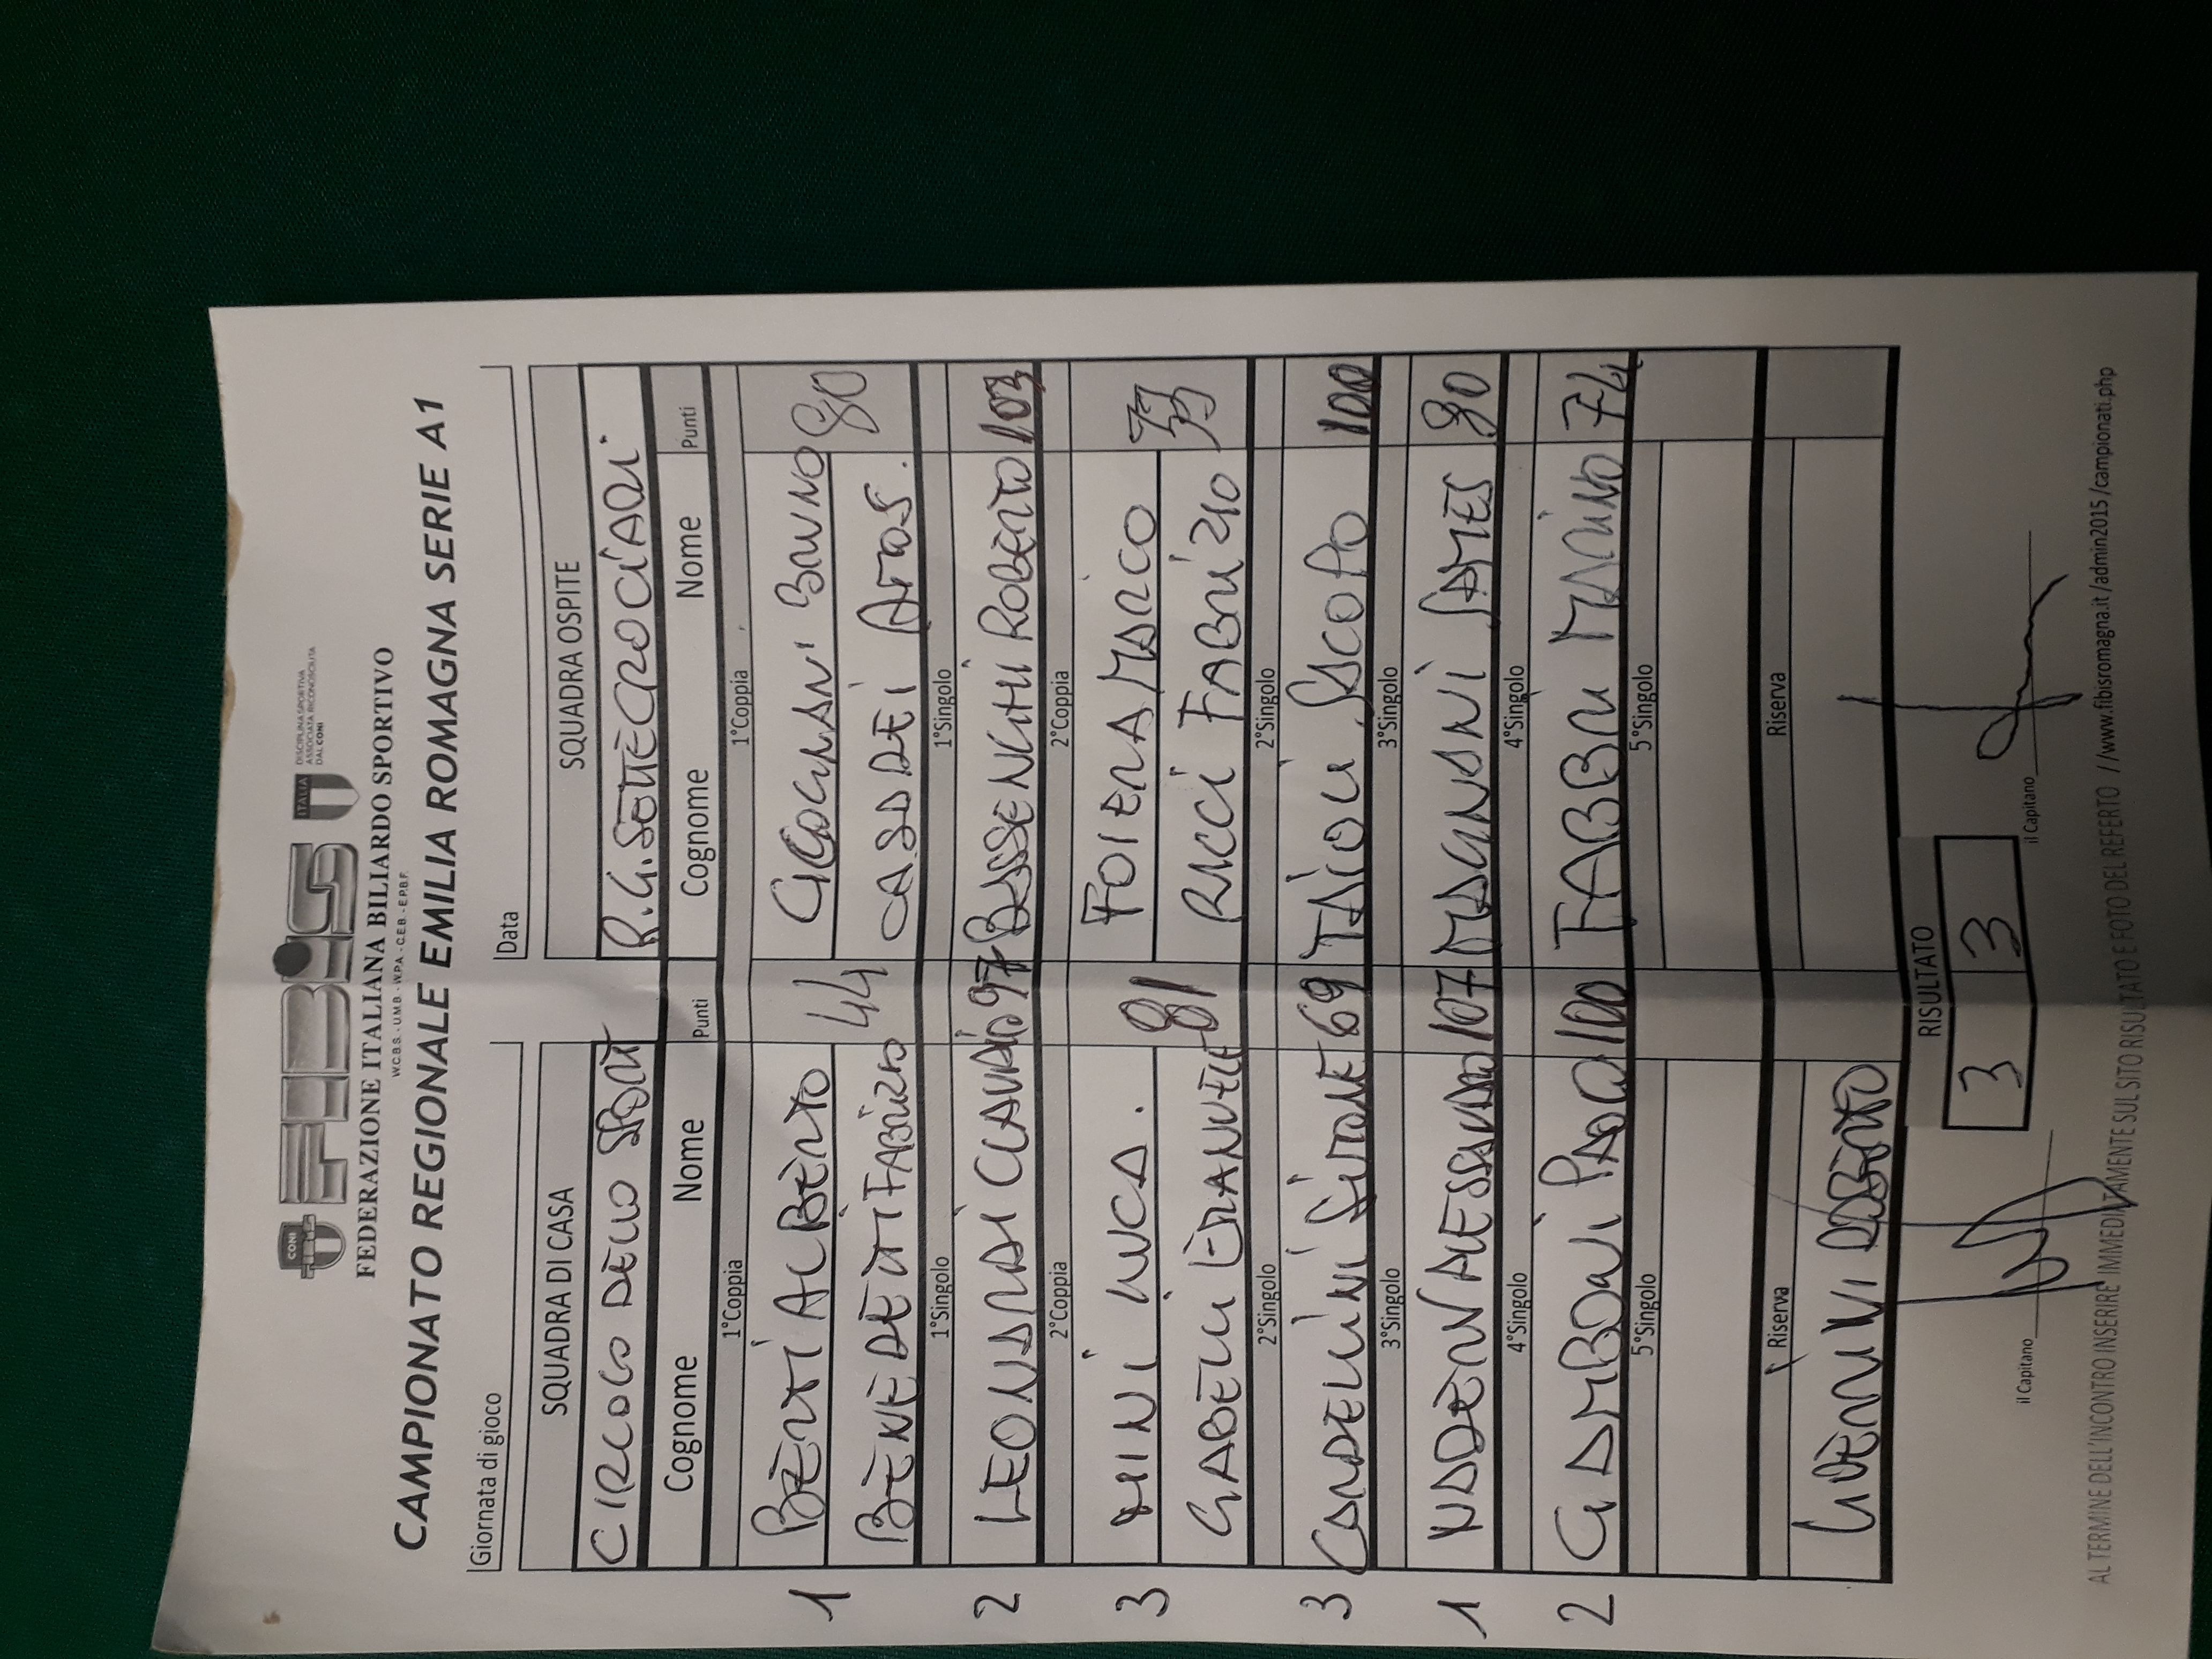 CONI FIBiS ITALIA DISCIPLINA SPORTIVA
ASSOCIATA RICONOSCIUTA
DAL CONI
FEDERAZIONE ITALIANA BILIARDO SPORTIVO
W.C.B.S. - U.M.B. - W.P.A. - C.E.B. - E.P.B.F.
CAMPIONATO REGIONALE EMILIA ROMAGNA SERIE A1
Giornata di gioco Data
SQUADRA DI CASA SQUADRA OSPITE
CIRCOLO DELLO SPORT R.G. SOTTECROCIARI
Cognome Nome Punti Cognome Nome Punti
1°Coppia 1°Coppia
1 BERTI ALBERTO 44 CICOGNANI BRUNO 80
BENEDETTI FABRIZIO CASADEI ATOS.
1°Singolo 1°Singolo
2 LEONARDI CLAUDIO 97 BASSENGHI ROBERTO 103
2°Coppia 2°Coppia
3 MINI LUCA. 81 FOIERA MARCO
GABELLI EMANUELE RICCI FABRIZIO
2°Singolo 2°Singolo
3 CANDELINI SIMONE 69 TAIOLI JACOPO 100
3°Singolo 3°Singolo
1 ALESSANDRO 107 MAGNANI JAMES 90
4°Singolo 4°Singolo
2 GAMBONI PAOLO 100 FABBRI MARINO 74
5°Singolo 5°Singolo
Riserva Riserva
GUERRINI ROBERTO
RISULTATO
3 3
il Capitano il Capitano
AL TERMINE DELL'INCONTRO INSERIRE IMMEDIATAMENTE SUL SITO RISULTATO E FOTO DEL REFERTO //www.fibisromagna.it/admin2015/campionati.php